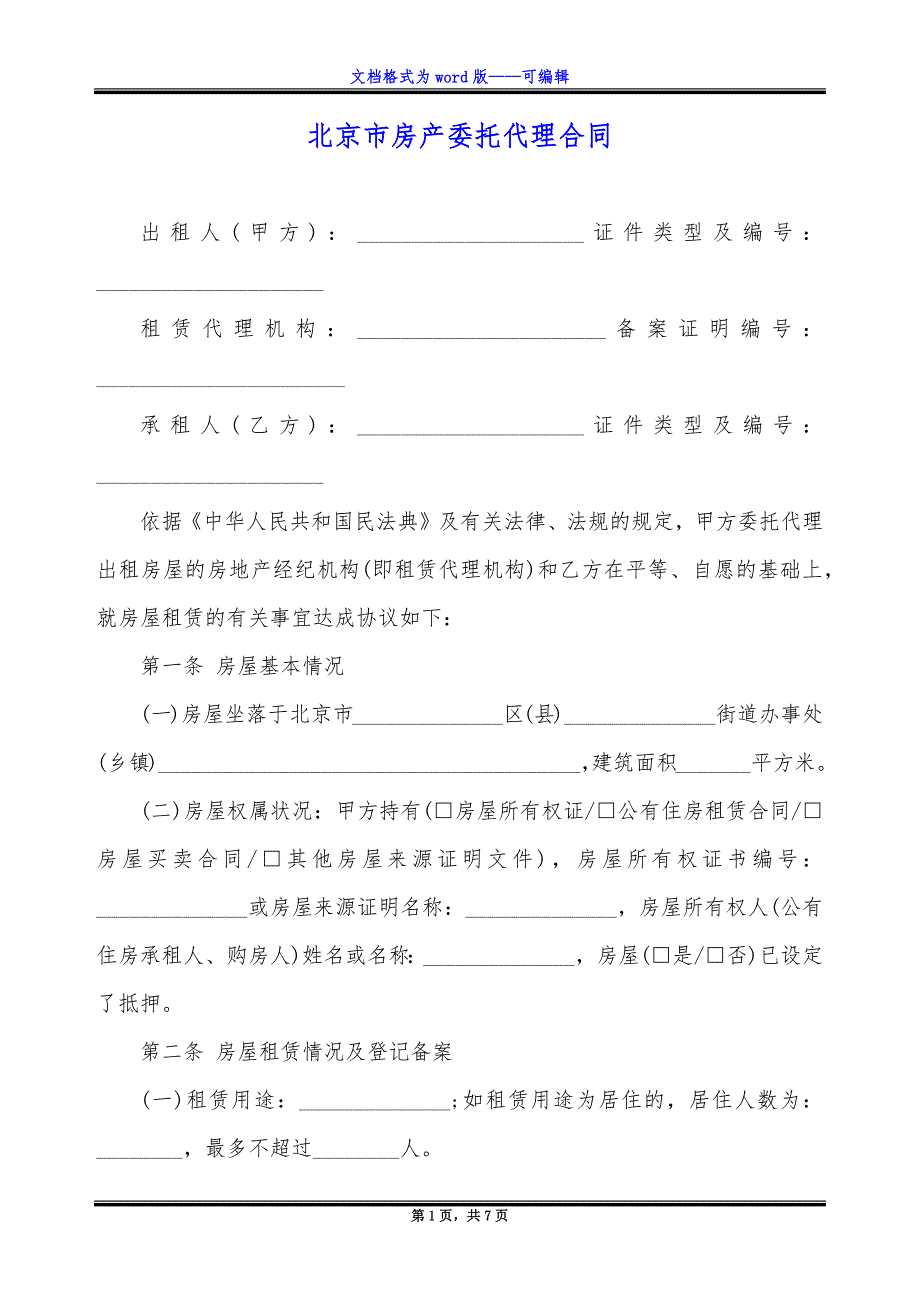 文档格式为 word 版——可编辑
北京市房产委托代理合同
出租人(甲方)：_____________________证件类型及编号：
_____________________
租赁代理机构：_______________________备案证明编号：
_______________________
承租人(乙方)：_____________________证件类型及编号：
_____________________
依据《中华人民共和国民法典》及有关法律、法规的规定，甲方委托代理
出租房屋的房地产经纪机构(即租赁代理机构)和乙方在平等、自愿的基础上，
就房屋租赁的有关事宜达成协议如下：
第一条 房屋基本情况
(一)房屋坐落于北京市______________区(县)______________街道办事处
(乡镇)_______________________________________，建筑面积_______平方米。
(二)房屋权属状况：甲方持有(□房屋所有权证/□公有住房租赁合同/□
房屋买卖合同/□其他房屋来源证明文件)，房屋所有权证书编号：
______________或房屋来源证明名称：______________，房屋所有权人(公有
住房承租人、购房人)姓名或名称：______________，房屋(□是/□否)已设定
了抵押。
第二条 房屋租赁情况及登记备案
(一)租赁用途：______________;如租赁用途为居住的，居住人数为：
________，最多不超过________人。
第 1 页，共 7 页